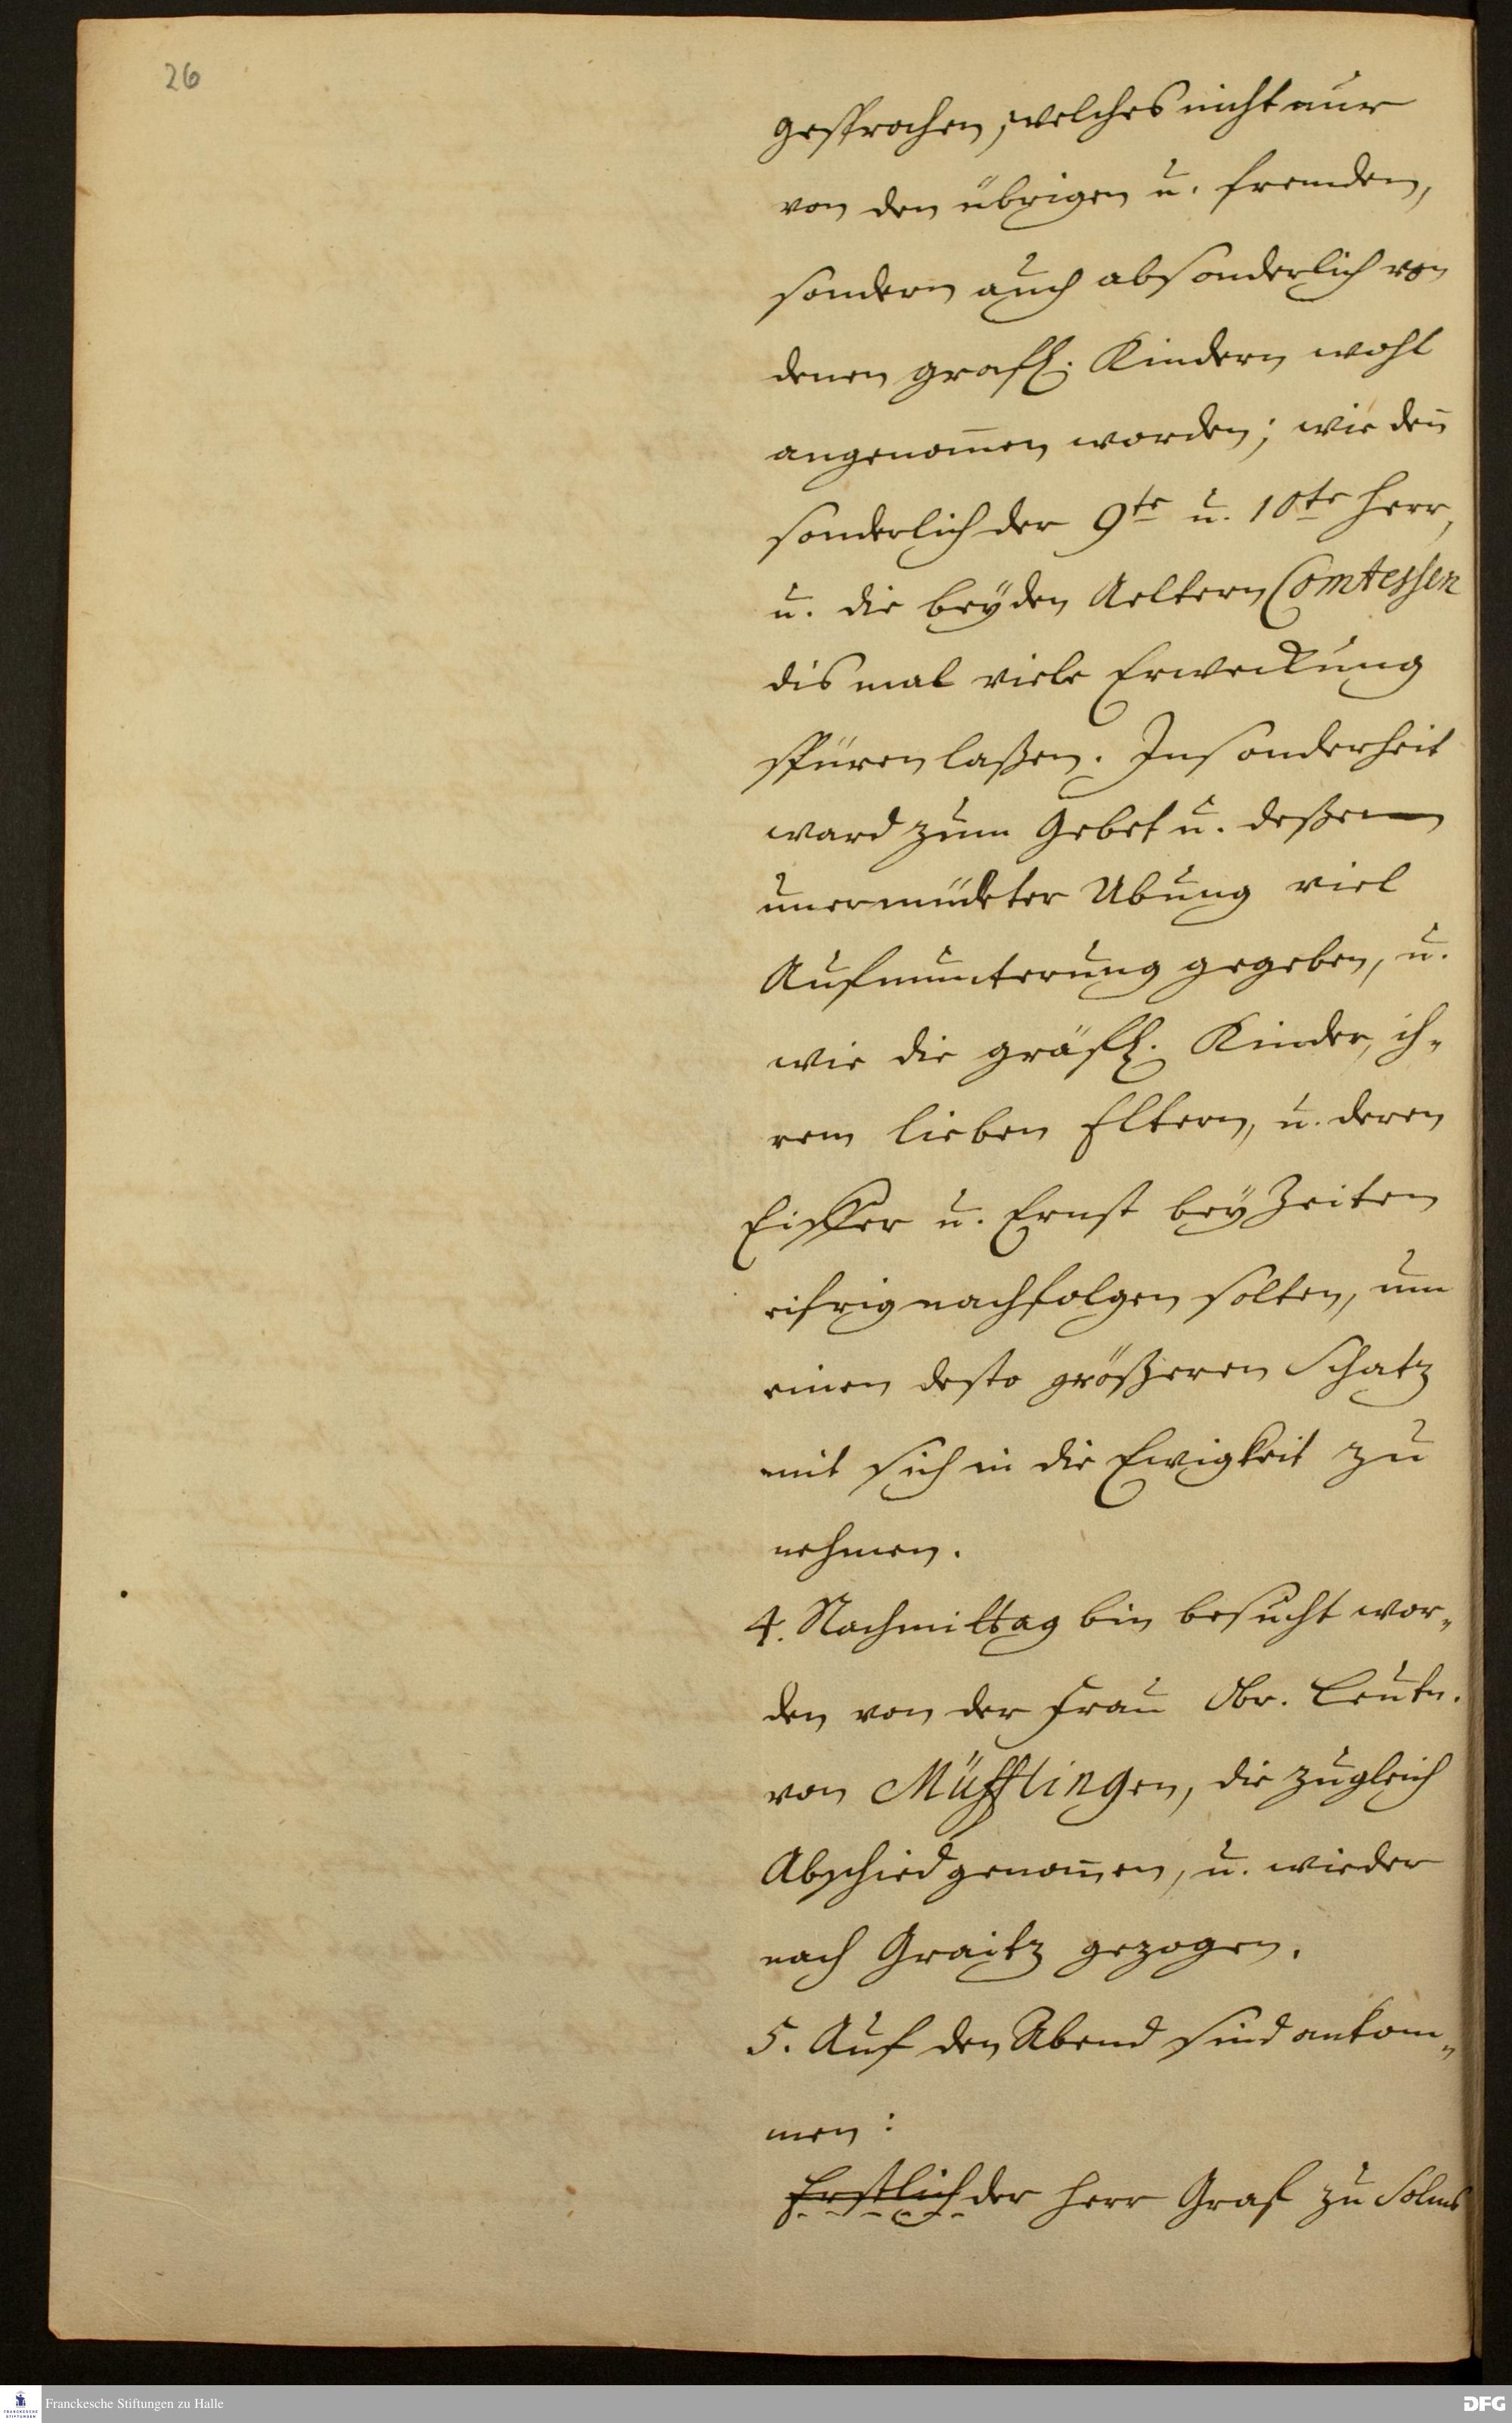 26
gesprochen, welches nicht nur
von den übrigen u. fremden,
sondern auch absonderlich von
denen gräfl. Kindern wohl
angenom̄en worden; wie den̄
sonderlich der 9te u. 10te Herr,
u. die beyden Aeltern Comtessen
dis mal viele Erweckung
spüren laßen. Insonderheit
ward zum Gebet u. deßen
unermüdeter Ubung viel
Aufmunterung gegeben, u.
wie die gräfl. Kinder, ih-
rem lieben Eltern, u. deren
Eiffer u. Ernst bey Zeiten
eifrig nachfolgen solten, um
einen desto größeren Schatz
mit sich in die Ewigkeit zu
nehmen.
4. Nachmittag bin besucht wor-
den von der Frau Obr. Leutn.
von Müfflingen, die zugleich
Abschied genom̄en, u. wieder
nach Graitz gezogen.
5. Auf den Abend sind ankom-
men:
Erstlich der Herr Graf zu Solms
Franckesche Stiftungen zu Halle
FRANCKESCHE
STIFTUNGEN
DFG